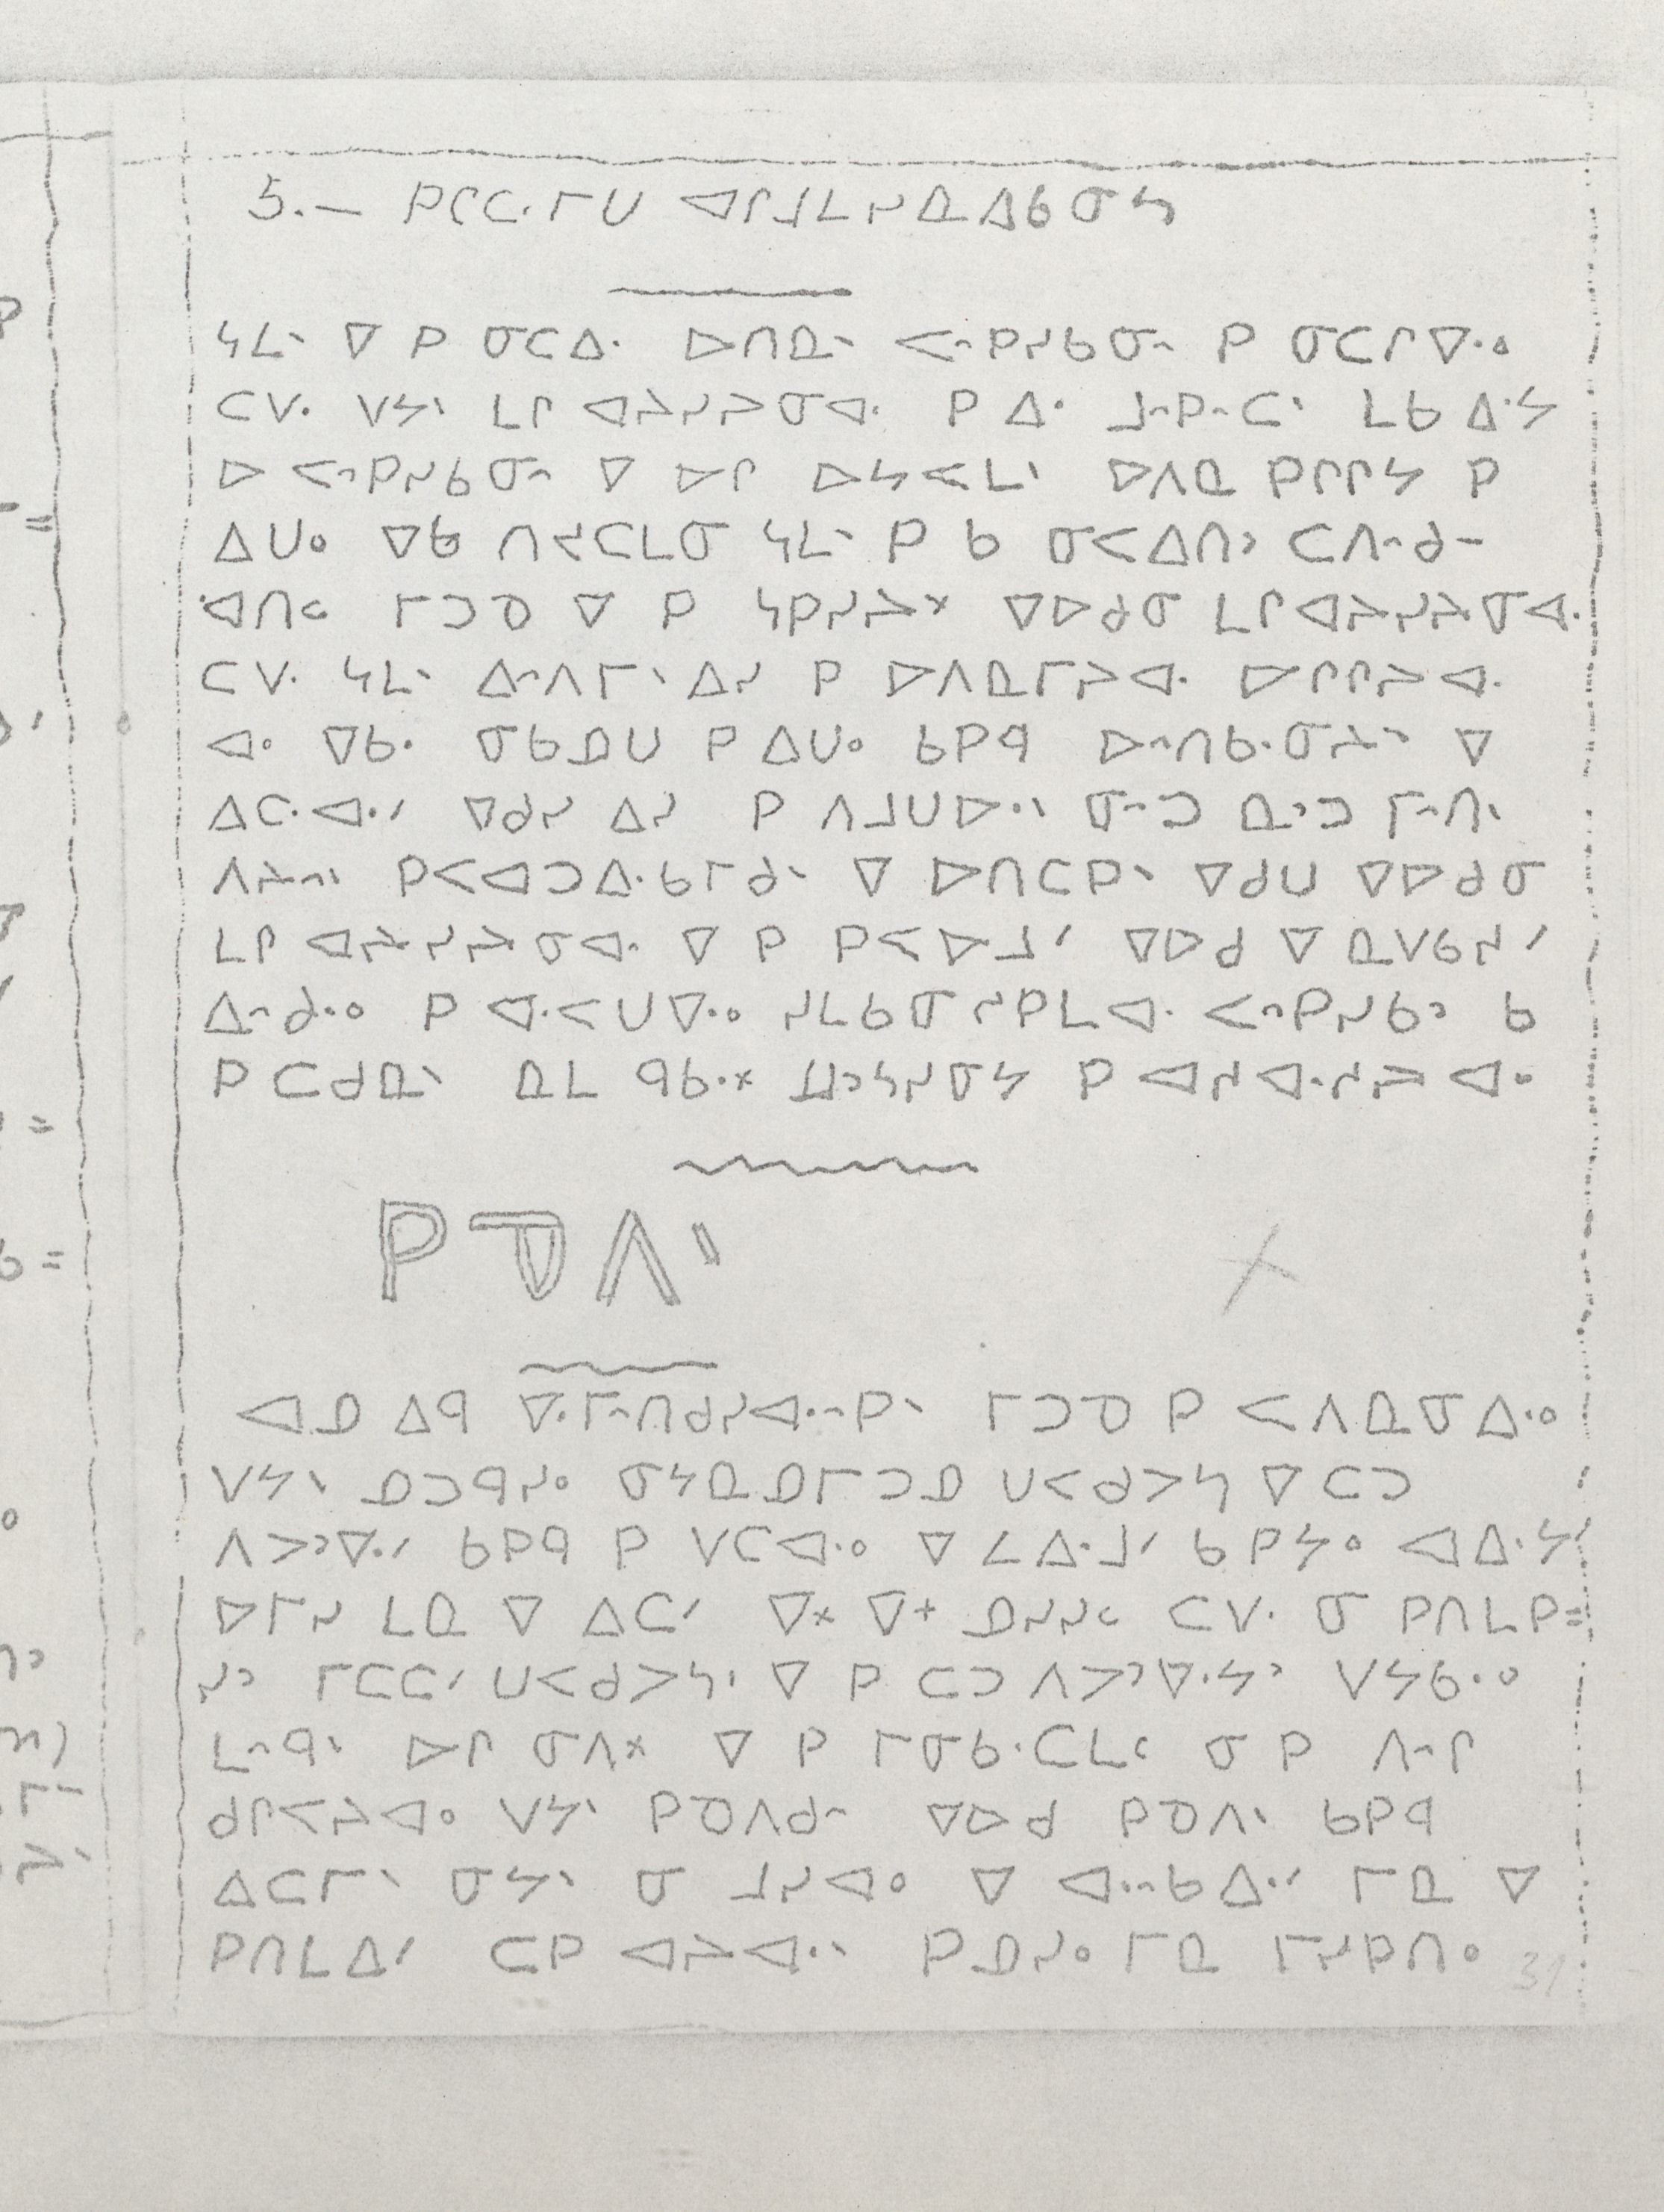 5.— ᑭᒋᑕᐧᒥᑌ ᐊᒋᒧᒪᓱᓇᐃᑲᓂᓴ
ᓴᒪᐠ ᐁ ᑭ ᓂᑕᐃᐧ ᐅᑎᓇᐠ ᐸᐢᑭᓯᑲᓂᐢ ᑭ ᓂᑕᒋᐁᐧᐤ
ᑕᐯᐧ ᐯᔭᐠ ᒪᒋ ᐊᔨᓯᔨᓂᐊᐧ ᑭ ᐃᐧ ᒧᐢᑭᐢᑕᐠ ᒪᑲ ᐃᐧᔭ
ᐅ ᐸᐢᑭᓯᑲᓂᐢ ᐁ ᐅᒋ ᐅᔭᐸᒪᐠ ᐅᐱᓇ ᑭᒋᒋᔭ ᑭ
ᐃᑌᐤ ᐁᑲ ᑎᐸᑕᒪᓂ ᓴᒪᐠ ᑭ ᑲ ᓂᐸᐃᑎᐣ ᑕᐱᐢᑯᐨ
ᐊᐧᑎᓪ ᒥᑐᓀ ᐁ ᑭ ᓴᑭᓯᔨᕽ ᐁᐅᑯᓂ ᒪᒋᐊᔨᓯᔨᓂᐊᐧ
ᑕᐯᐧ ᓴᒪᐠ ᐃᐢᐱᒥᐠ ᐃᓯ ᑭ ᐅᐱᓇᒥᔨᐊᐧ ᐅᒋᒋᔨᐊᐧ
ᐊᐤ ᐁᑲᐧ ᓂᑲᓄᑌ ᑭ ᐃᑌᐤ ᑲᑭᑫ ᐅᐢᑎᑲᐧᓂᔨᐠ ᐁ
ᐃᑕᐧᐊᐧᐟ ᐁᑯᓯ ᐃᓯ ᑭ ᐱᒧᑌᐅᐧᐠ ᓂᐢᑐ ᓇᐣᑐ ᒥᐢᑎᐠ
ᐱᔨᐢᐠ ᑭᐸᐊᑐᐃᐧᑲᒥᑯᐠ ᐁ ᐅᑎᑕᑭᐠ ᐁᑯᑌ ᐁᐅᑯᓂ
ᒪᒋ ᐊᔨᓯᔨᓂᐊᐧ ᐁ ᑭ ᑭᐸᐅᒧᐟ ᐁᐅᑯ ᐁ ᓇᐯᑲᓱᐟ
ᐃᐢᑯᐧᐤ ᑭ ᐊᐧᐸᑌᐁᐧᐤ ᓯᒪᑲᓂᓯᑭᒪᐊᐧ ᐸᐢᑭᓯᑲᐣ ᑲ
ᑭ ᑕᑯᓇᐠ ᓇᒪ ᑫᑲᐧᕽ ᒧᐣᓴᓯᓂᔭ ᑭ ᐊᓯᐊᐧᓱᔨ ᐊᐤ
ᑭᓀᐱᐠ
ᐊᓄ ᐃᑫ ᐁᐧᒥᐢᑎᑯᓯᐊᐧᐢᑭᐠ ᒥᑐᓀ ᑭ ᐸᐱᓇᓂᐃᐧᐤ
ᐯᔭᐠ ᓄᑐᑫᓯᐤ ᓂᔭᓇᓄᒥᑐᓄ ᑌᐸᑯᐳᓴ ᐁ ᑕᑐ
ᐱᐳᐣᐁᐧᐟ ᑲᑭᑫ ᑭ ᐯᑕᐊᐧᐤ ᐁ ᒪᐃᐧᒧᐟ ᑲ ᑭᔭᐤ ᐊᐃᐧᔭ
ᐅᒥᓯ ᒪᓇ ᐁ ᐃᑕᐟ ᐁᕽ ᐁᕀ ᓄᓯᓯᒼ ᑕᐯᐧ ᓂ ᑭᑎᒪᑭ=
ᓯᐣ ᒥᑕᑕᐟ ᑌᐸᑯᐳᓴᐠ ᐁ ᑭ ᑕᑐ ᐱᐳᐣᐁᐧᔭᐣ ᐯᔭᑲᐧᐤ
ᒪᐢᑫᐠ ᐅᒋ ᓂᐱᕽ ᐁ ᑭ ᒥᓂᑲᐧᑕᒪᒼ ᓂ ᑭ ᐱᐢᒋ
ᑯᒋᐸᔨᐊᐤ ᐯᔭᐠ ᑭᓀᐱᑯᐢ ᐁᐅᑯ ᑭᓀᐱᐠ ᑲᑭᑫ
ᐃᑕᒥᐠ ᓂᔭᐠ ᓂ ᒧᓯᐊᐤ ᐁ ᐊᐧᐢᑲᐃᐧᐟ ᒥᓇ ᐁ
ᑭᑎᒪᐃᐟ ᑕᑭ ᐊᔨᐊᐧᐠ ᑭᓄᓯᐤ ᒥᓇ ᒥᓯᑭᑎᐤ
31